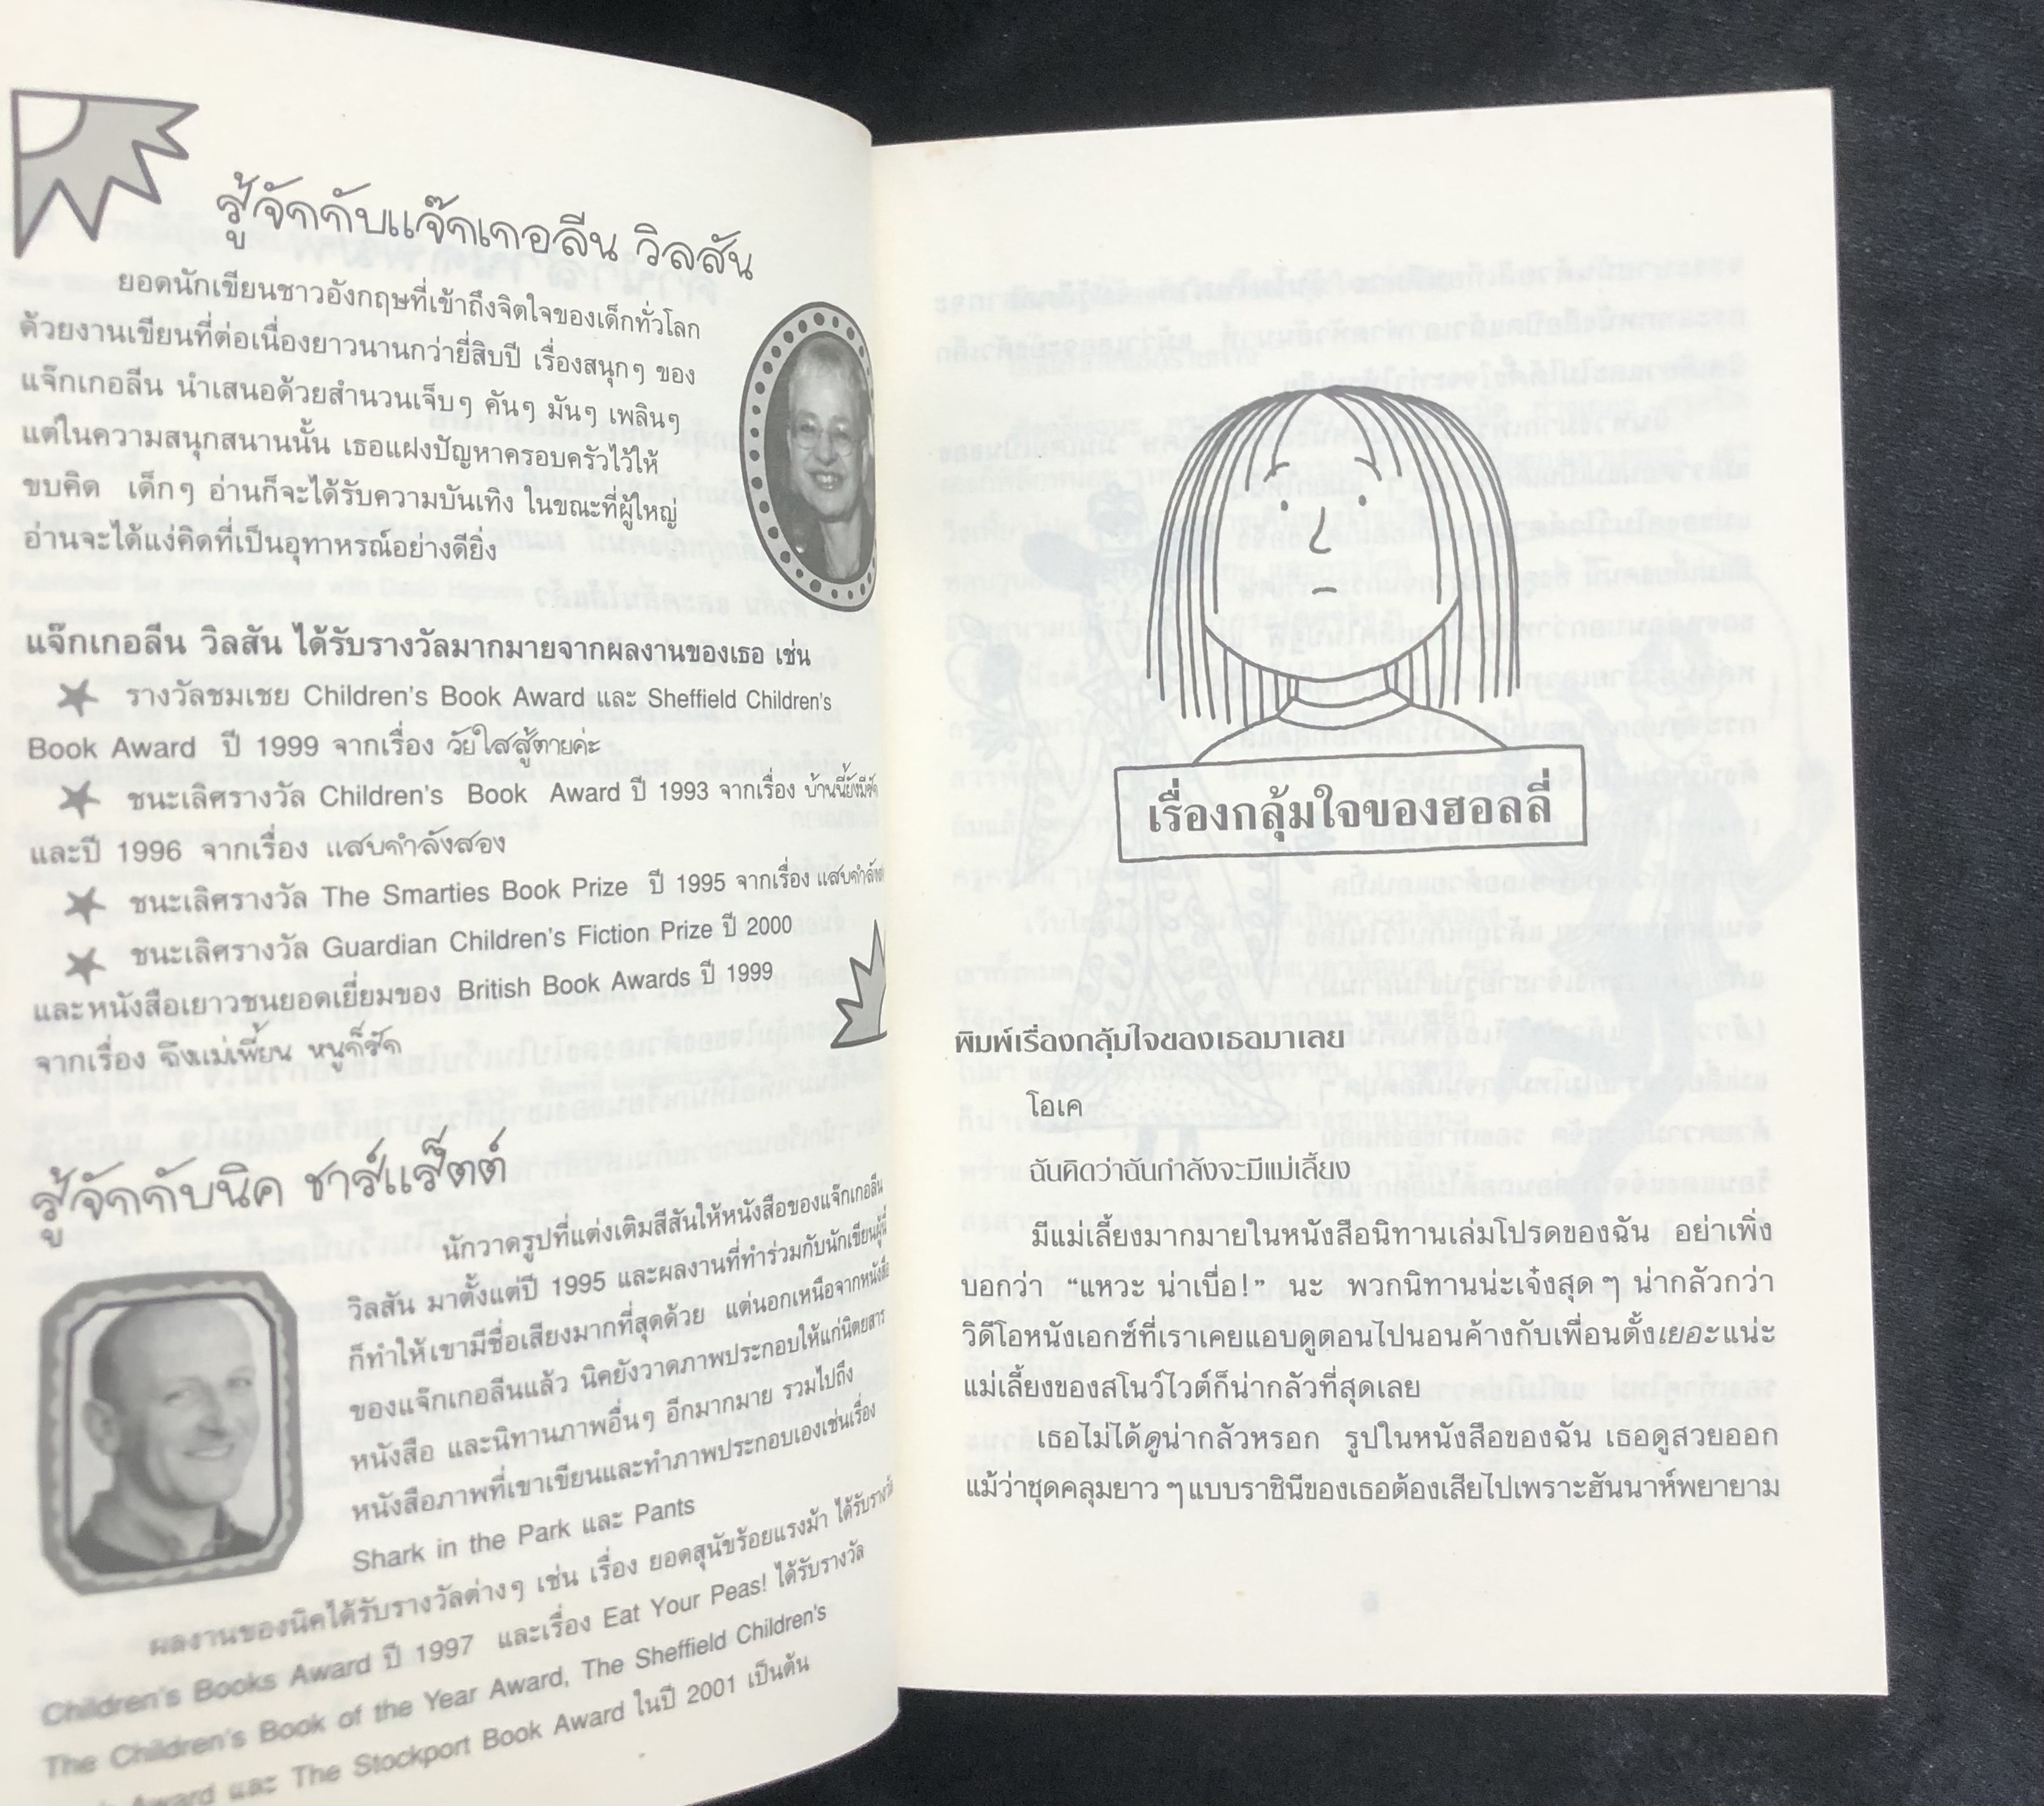 รู้จักกับแจ๊กเกอลีน วิลสัน
ยอดนักเขียนชาวอังกฤษที่เข้าถึงจิตใจของเด็กทั่วโลก
ด้วยงานเขียนที่ต่อเนื่องยาวนานกว่ายี่สิบปี เรื่องสนุกๆ ของ
แจ๊กเกอลีน นำเสนอด้วยสำนวนเจ็บๆ คันๆ มันๆ เพลินๆ
แต่ในความสนุกสนานนั้น เธอแฝงปัญหาครอบครัวไว้ให้
ขบคิด เด็กๆ อ่านก็จะได้รับความบันเทิง ในขณะที่ผู้ใหญ่
อ่านจะได้แง่คิดที่เป็นอุทาหรณ์อย่างดียิ่ง
แจ๊กเกอลีน วิลสัน ได้รับรางวัลมากมายจากผลงานของเธอ เช่น
รางวัลชมเชย Children's Book Award และ Sheffield Children's
Book Award ปี 1999 จากเรื่อง วัยใสสู้ตายค่ะ
ชนะเลิศรางวัล Children's Book Award ปี 1993 จากเรื่อง บ้านนี้ยังมีรัก
และปี 1996 จากเรื่อง แสบกำลังสอง
ชนะเลิศรางวัล The Smarties Book Prize ปี 1995 จากเรื่อง แสบกำลัง
ชนะเลิศรางวัล Guardian Children's Fiction Prize ปี 2000
และหนังสือเยาวชนยอดเยี่ยมของ British Book Awards ปี 1999
จากเรื่อง ถึงแม่เพี้ยน หนูก็รัก
รู้จักกับนิค ชาร์แร็ตต์
นักวาดรูปที่แต่งเติมสีสันให้หนังสือของแจ๊กเกอลีน
วิลสัน มาตั้งแต่ปี 1995 และผลงานที่ทำร่วมกับนักเขียนผู้นี้
ก็ทำให้เขามีชื่อเสียงมากที่สุดด้วย แต่นอกเหนือจากหนังสือ
ของแจ๊กเกอลีนแล้ว นิคยังวาดภาพประกอบให้แก่นิตยสาร
หนังสือ และนิทานภาพอื่นๆ อีกมากมาย รวมไปถึง
หนังสือภาพที่เขาเขียนและทำภาพประกอบเองเช่นเรื่อง
Shark in the Park และ Pants
ผลงานของนิคได้รับรางวัลต่างๆ เช่น เรื่อง ยอดสุนัขร้อยแรงม้า ได้รับรางวัล
Children's Books Award ปี 1997 และเรื่อง Eat Your Peas! ได้รับรางวัล
The Children's Book of the Year Award, The Sheffield Children's
Award และ The Stockport Book Award ในปี 2001 เป็นต้น
เรื่องกลุ้มใจของฮอลลี่
พิมพ์เรื่องกลุ้มใจของเธอมาเลย
โอเค
ฉันคิดว่าฉันกำลังจะมีแม่เลี้ยง
มีแม่เลี้ยงมากมายในหนังสือนิทานเล่มโปรดของฉัน อย่าเพิ่ง
บอกว่า “แหวะ น่าเบื่อ!” นะ พวกนิทานน่ะเจ๋งสุด ๆ น่ากลัวกว่า
วิดีโอหนังเอกซ์ที่เราเคยแอบดูตอนไปนอนค้างกับเพื่อนตั้งเยอะแน่ะ
แม่เลี้ยงของสโนว์ไวต์ก็น่ากลัวที่สุดเลย
เธอไม่ได้ดูน่ากลัวหรอก รูปในหนังสือของฉัน เธอดูสวยออก
แม้ว่าชุดคลุมยาว ๆ แบบราชินีของเธอต้องเสียไปเพราะฮันนาห์พยายาม